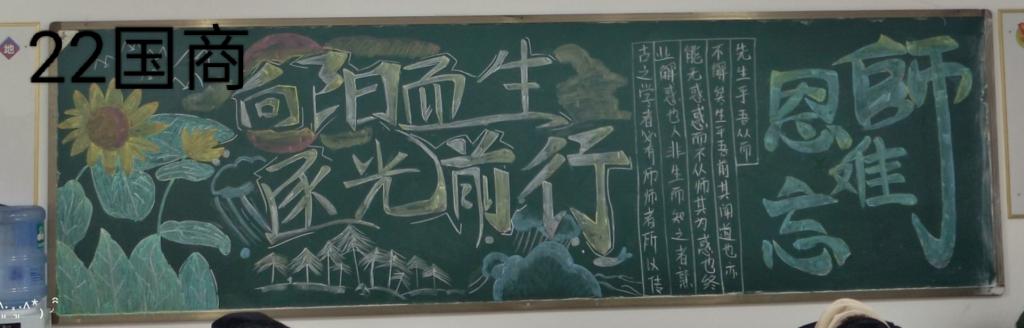 22国商
地
向阳而生
逐光前行
古之学者必有师师者所以传
业解惑也人非生而知之者孰
能无惑惑而不从师其为惑也终
不解矣生乎吾前其闻道也亦
先生乎吾从而
師恩难忘